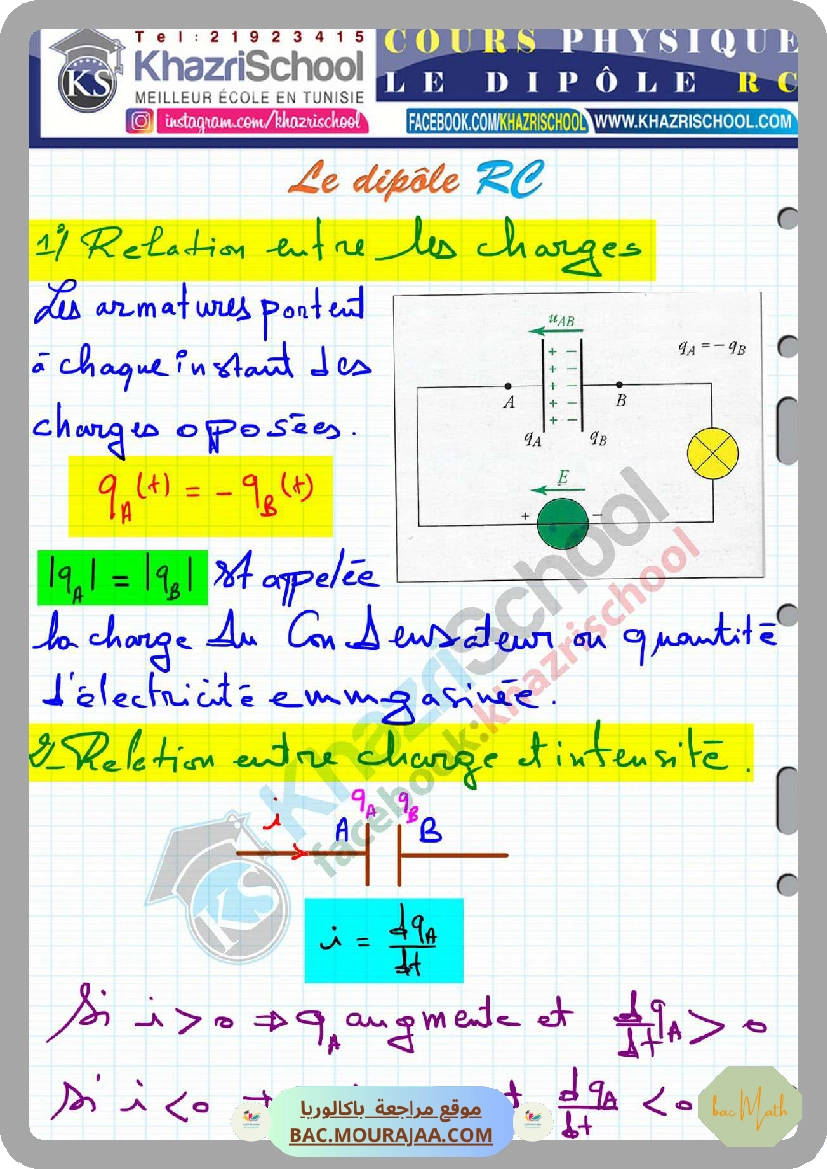 Tel: 21923415
KhazriSchool
MEILLEUR ÉCOLE EN TUNISIE
instagram.com/khazrischool
COURS PHYSIQUE
LE DIPÔLE RC
FACEBOOK.COM/KHAZRISCHOOL
WWW.KHAZRISCHOOL.COM
KS
Le dipôle RC
1°/ Relation entre les charges
Les armatures portent
à chaque instant des
charges oposées.
q_A(t) = - q_B(t)
|q_A| = |q_B| est appelée
la charge du Condensateur ou quantité
d'électricité emmgasinée.
u_AB
q_A = - q_B
+ −
+ −
+ −
+ −
+ −
A
B
q_A
q_B
E
+ −
2_ Relation entre charge et intensité.
i
A
q_A
q_B
B
i = dq_A/dt
Si i > 0 ⇒ q_A augmente et d/dt q_A > 0
Si i < 0
dq_A/dt < 0
KhazriSchool
facebook:khazrischool
KS
موقع مراجعة باكالوريا
BAC.MOURAJAA.COM
bac Math